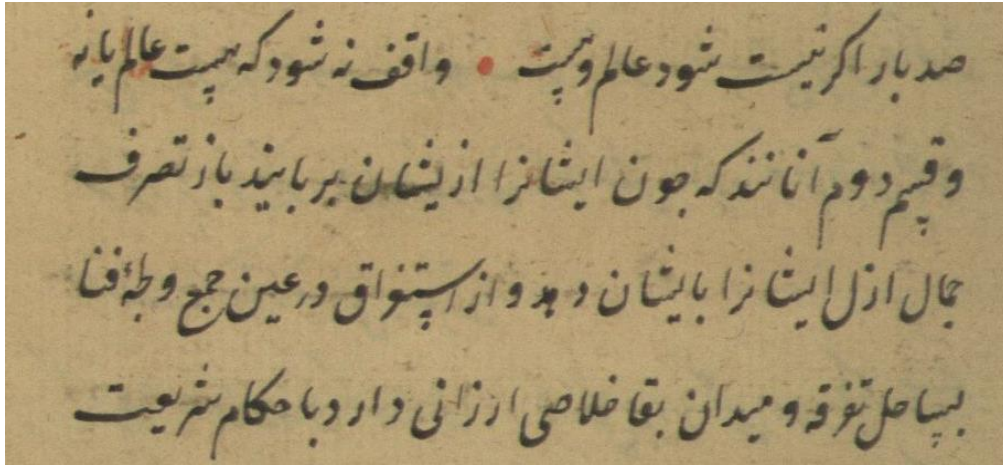 صد بار اکر نیست شود عالم وهست • واقف نه شود که هست عالم یا نه
وقسم دوم آنانند که جون ایشانرا ازیشان بربایند باز تصرف
جمال ازل ایشانرا بایشان دهد و از استغراق در عین جمع و لجۀ فنا
بساحل تفرقه و میدان بقا خلاصی ارزانی دارد با حکام شریعت